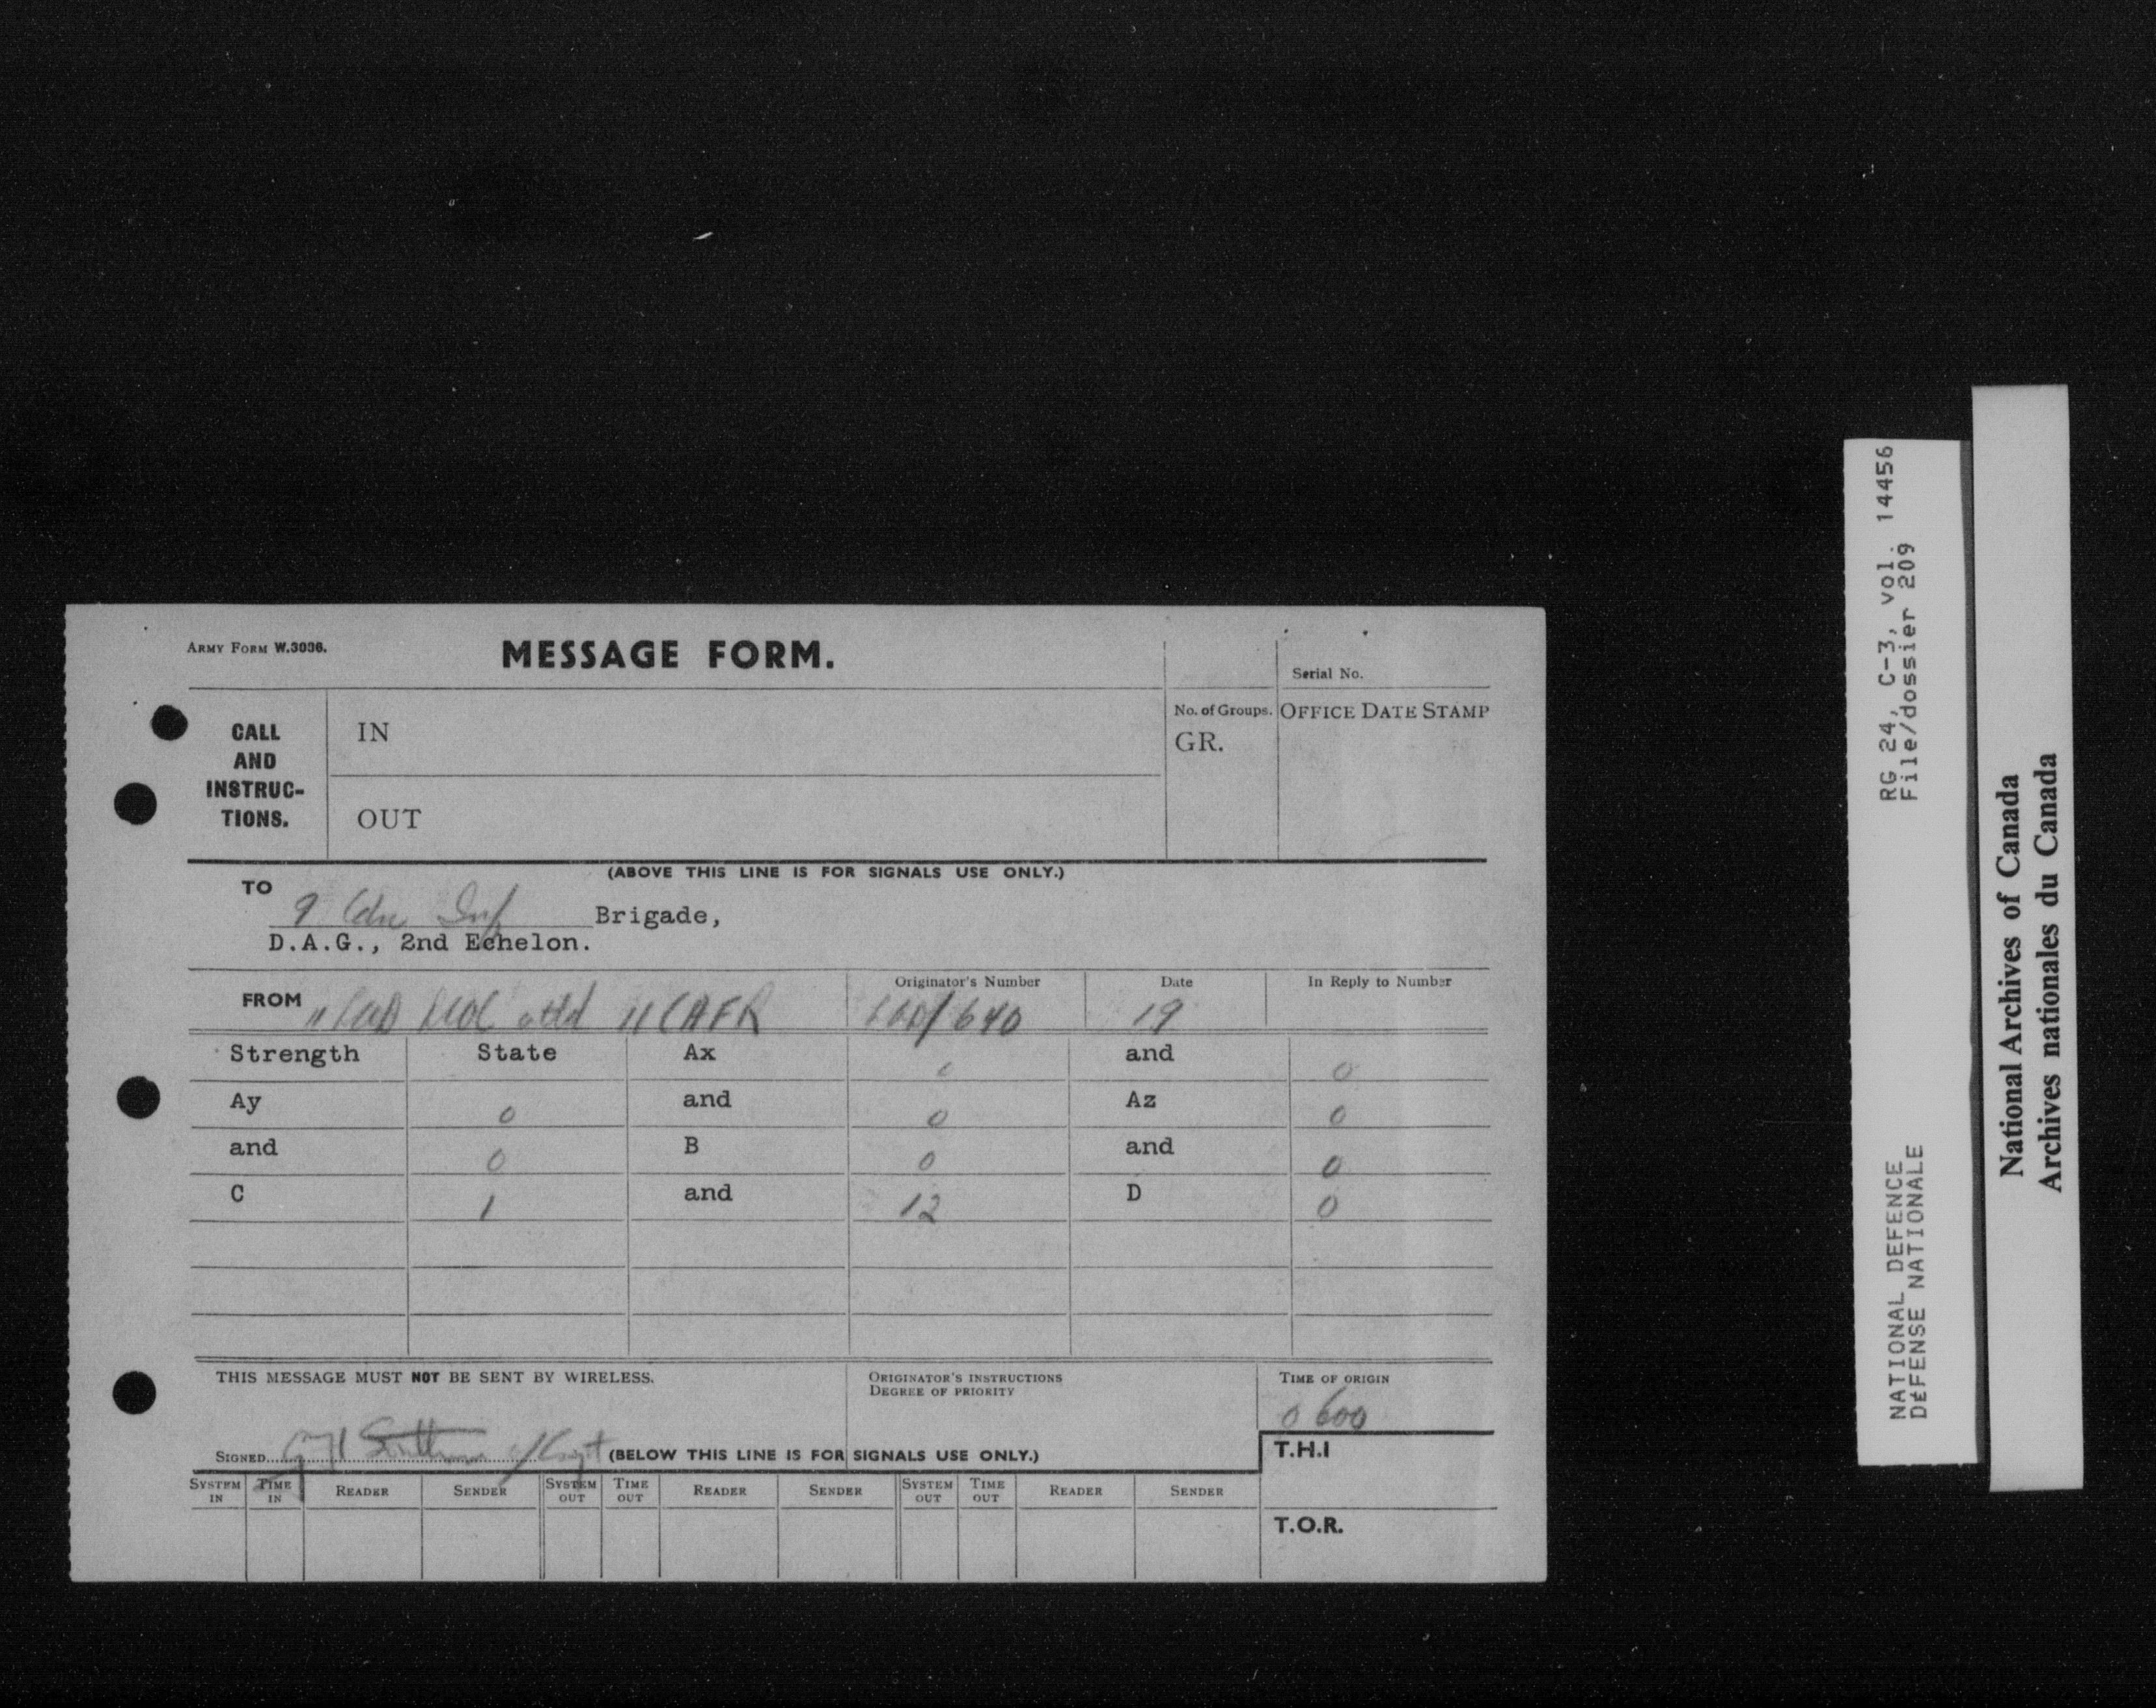 ARMY FORM W.3036.
MESSAGE FORM.
Serial No.
CALL AND INSTRUC-TIONS.
IN
No. of Groups.
GR.
OFFICE DATE STAMP
OUT
(ABOVE THIS LINE IS FOR SIGNALS USE ONLY.)
TO
9 Cdn Inf Brigade,
D.A.G., 2nd Echelon.
Originator's Number
Date
In Reply to Number
FROM 11 LAD attd 11 CAFR
LAD/640
19
Strength State Ax and 0
Ay 0 and 0 Az 0
and 0 B 0 and 0
C 1 and 12 D 0
THIS MESSAGE MUST NOT BE SENT BY WIRELESS.
ORIGINATOR'S INSTRUCTIONS
DEGREE OF PRIORITY
TIME OF ORIGIN
0600
SIGNED (BELOW THIS LINE IS FOR SIGNALS USE ONLY.)
T.H.I
SYSTEM IN TIME IN READER SENDER SYSTEM OUT TIME OUT READER SENDER SYSTEM OUT TIME OUT READER SENDER
T.O.R.
RG 24, C-3, vol. 14456
File/dossier 209
NATIONAL DEFENCE
DÉFENSE NATIONALE
National Archives of Canada
Archives nationales du Canada